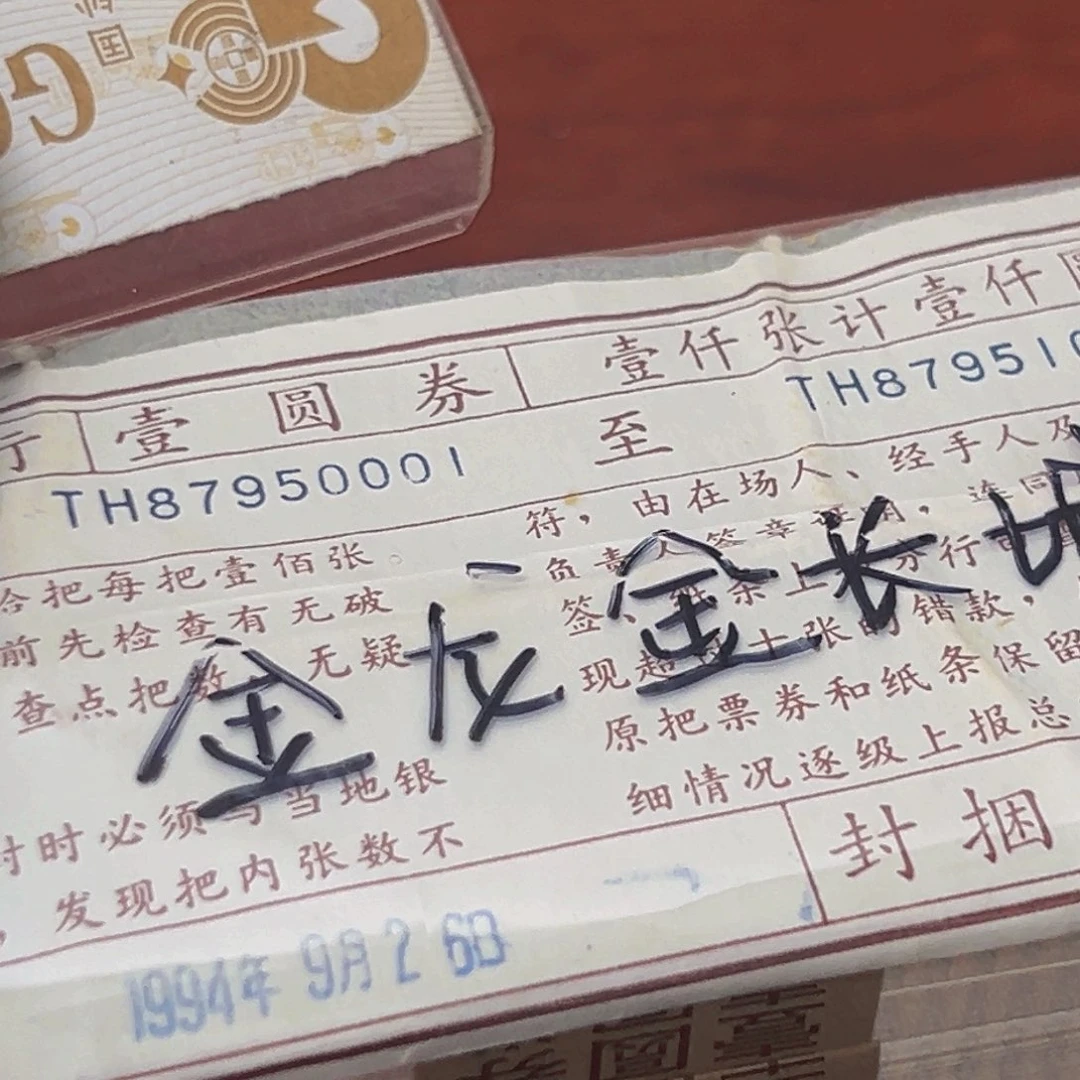 国
G
行 壹圆券 壹仟张计壹仟圆
TH87950001 至 TH879510
符，由在场人、经手人及
把每把壹佰张 负责人签章证明，连同
前先检查有无破 签、纸条上
查点把数 无疑 现超 十张的错款，
金龙金长城
原把票券和纸条保留
时必须与当地银 细情况逐级上报总
，发现把内张数不 封捆
1994年 9月26日
壹圆券